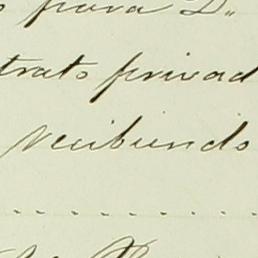 para D.,
trato privad
recibiendo